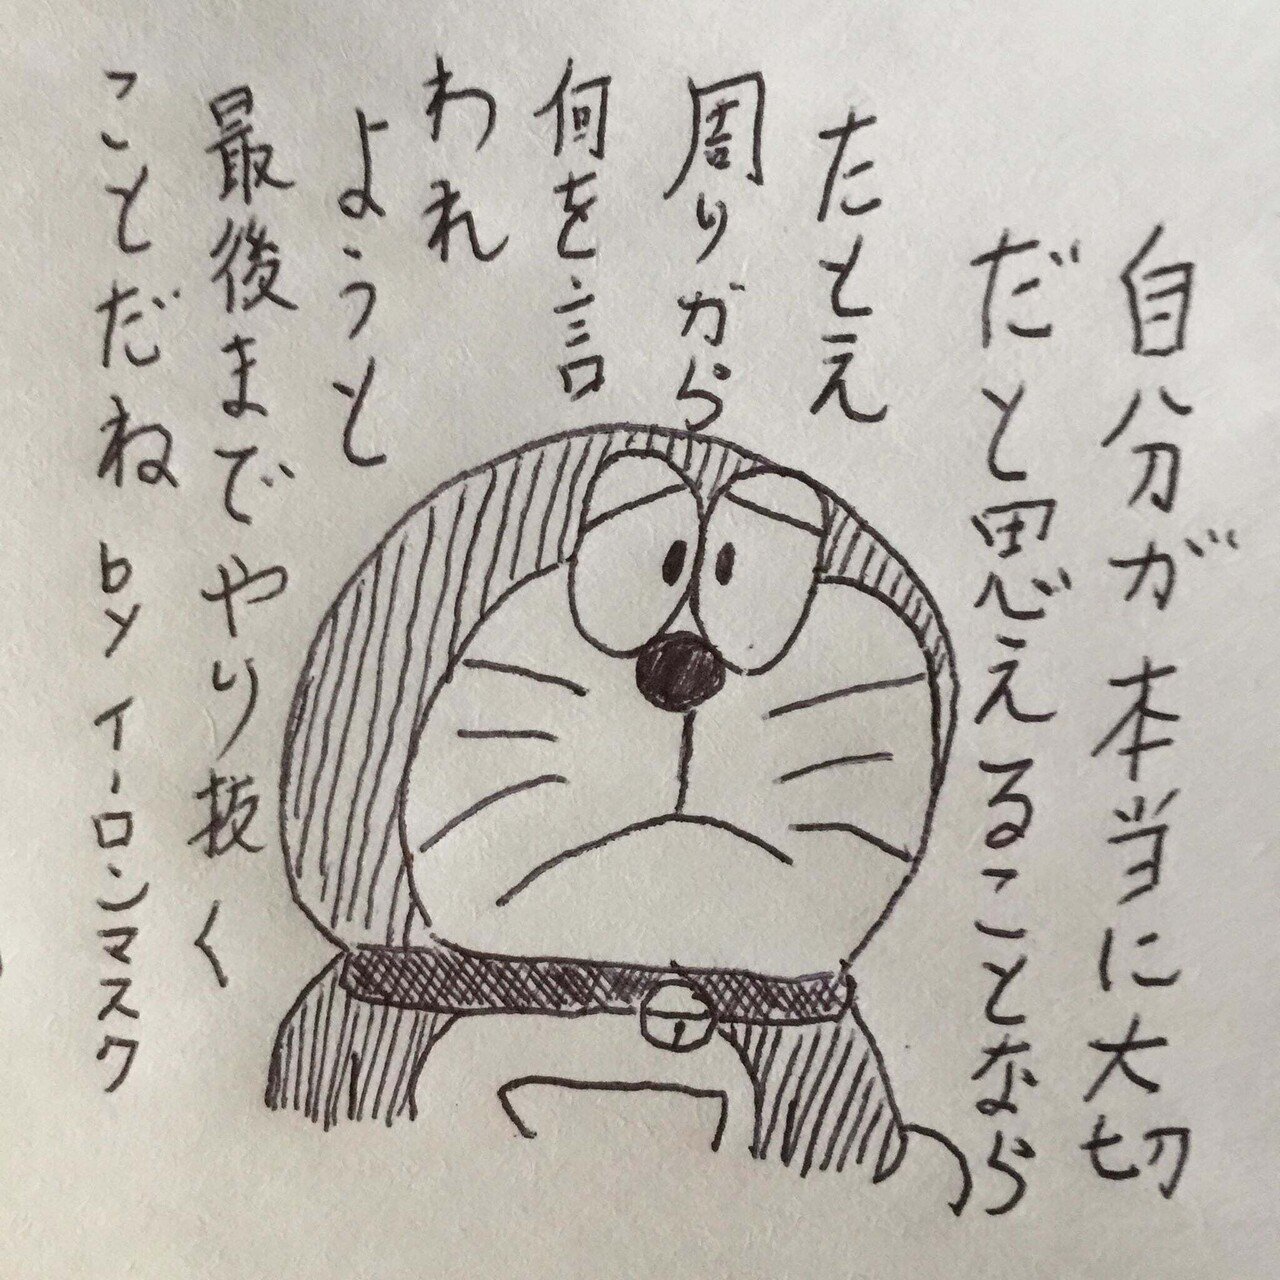 自分が本当に大切
だと思えることなら
たとえ
周りから
何を言
われ
ようと
最後までやり抜く
ことだね by イーロンマスク